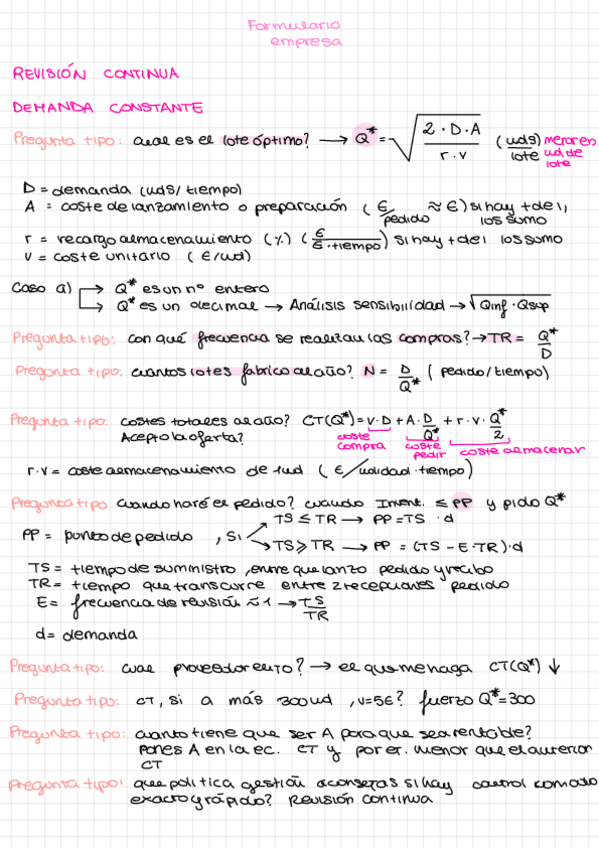 Formulario
empresa
REVISIÓN CONTINUA
DEMANDA CONSTANTE
Pregunta tipo: cual es el lote óptimo? → Q* = √(2·D·A / r·v) (uds/lote) menor en ud de lote
D = demanda (uds/tiempo)
A = coste de lanzamiento o preparación (€/pedido ≈ €) si hay + de 1, los sumo
r = recargo almacenamiento (%) (€/€·tiempo) si hay + de 1 los sumo
v = coste unitario (€/ud)
Caso a) → Q* es un nº entero
→ Q* es un decimal → Análisis sensibilidad → √Qinf·Qsup
Pregunta tipo: con qué frecuencia se realizan las compras? → TR = Q*/D
Pregunta tipo: cuantos lotes fabrico al año? N = D/Q* (pedido/tiempo)
Pregunta tipo: costes totales al año? CT(Q*) = v·D + A·D/Q* + r·v·Q*/2
Acepto la oferta? coste compra coste pedir coste almacenar
r·v = coste almacenamiento de 1ud (€/unidad·tiempo)
Pregunta tipo cuando haré el pedido? cuando Invent. ≤ PP y pido Q*
PP = punto de pedido , si → TS ≤ TR → PP = TS · d
→ TS ≥ TR → PP = (TS - E·TR)·d
TS = tiempo de suministro, entre que lanzo pedido y recibo
TR = tiempo que transcurre entre 2 recepciones pedido
E = frecuencia de revisión ≈ 1 → TS/TR
d = demanda
Pregunta tipo: cual proveedor elijo? → el que me haga CT(Q*) ↓
Pregunta tipo: CT, si a más 300ud , v=5€? fuerzo Q*=300
Pregunta tipo: cuanto tiene que ser A para que sea rentable?
Pones A en la ec. CT y por er. menor que el anterior
CT
Pregunta tipo: que política gestión aconsejas si hay control cómodo
exacto y rápido? Revisión continua